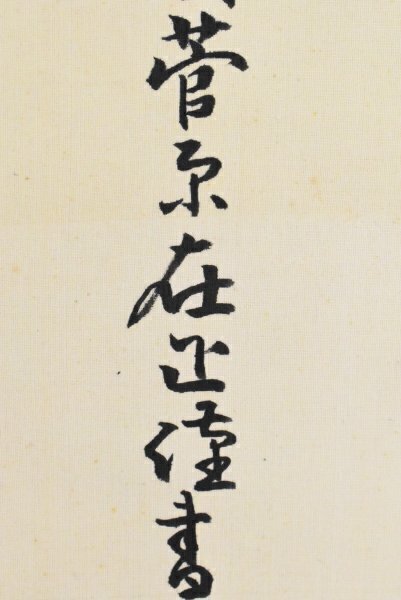 菅原在正謹書